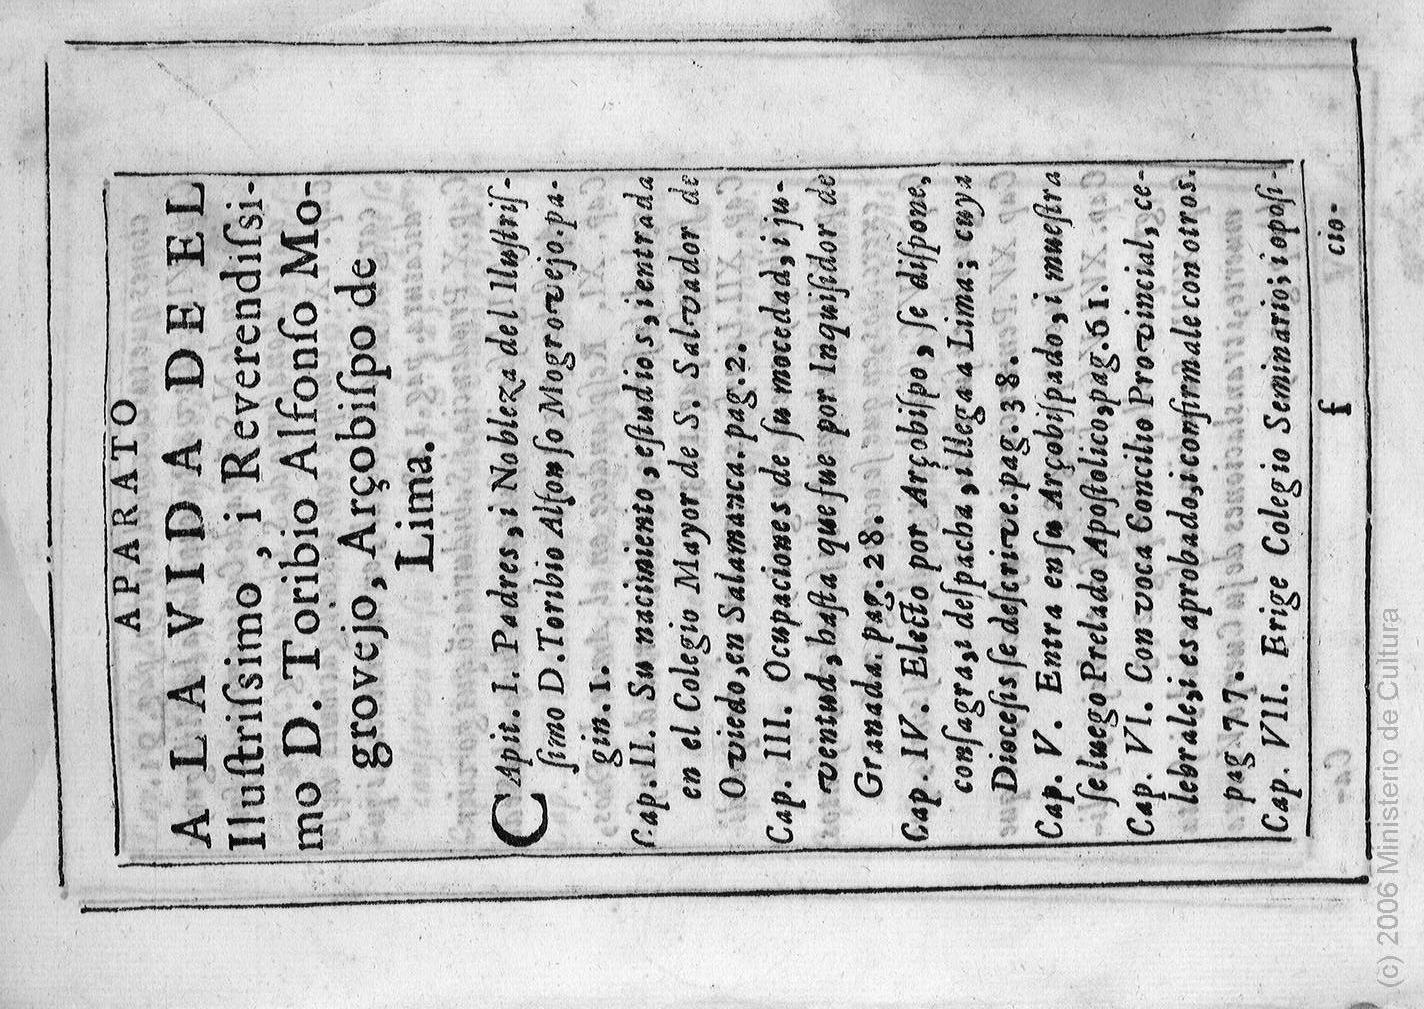 APARATO
A LA VIDA DE EL
Iluſtriſsimo, i Reverendiſsi-
mo D. Toribio Alfonſo Mo-
grovejo, Arçobiſpo de
Lima.
CApit. I. Padres, i Nobleza del Iluſtriſ-
ſimo D. Toribio Alfonſo Mogrovejo. pa-
gin. 1.
Cap. II. Su nacimiento, eſtudios, i entrada
en el Colegio Mayor de S. Salvador de
Oviedo, en Salamanca. pag. 2.
Cap. III. Ocupaciones de ſu mocedad, i ju-
ventud, haſta que fue por Inquiſidor de
Granada. pag. 28.
Cap. IV. Electo por Arçobiſpo, ſe diſpone,
conſagra, i deſpacha, i llega a Lima; cuya
Dioceſis ſe deſcrive. pag. 38.
Cap. V. Entra en ſu Arçobiſpado, i mueſtra
ſe luego Prelado Apoſtolico, pag. 61.
Cap. VI. Convoca Concilio Provincial, ce-
lebrale, i es aprobado, i confirmale con otros.
pag 77.
Cap. VII. Erige Colegio Seminario; i opoſi-
f cio-
(c) 2006 Ministerio de Cultura